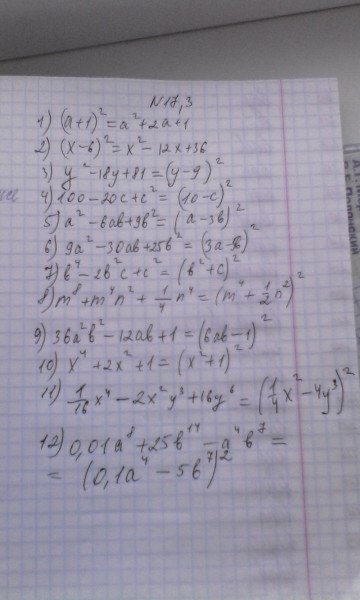 N 17,3
1) (a+1)² = a²+2a+1
2) (x-6)² = x² - 12x+36
3) y² - 18y+81 = (y-9)²
4) 100-20c+c² = (10-c)²
5) a² - 6ab+9b² = (a-3b)²
6) 9a² - 30ab+25b² = (3a-5b)²
7) b⁴ - 2b²c+c² = (b²+c)²
8) m⁸+m⁴n²+1/4 n⁴ = (m⁴+1/2 n²)²
9) 36a²b² - 12ab+1 = (6ab-1)²
10) x⁴+2x²+1 = (x²+1)²
11) 1/16 x⁴ - 2x²y³+16y⁶ = (1/4 x² - 4y³)²
12) 0,01a⁸+25b¹⁴ - a⁴b⁷ =
= (0,1a⁴ - 5b⁷)²